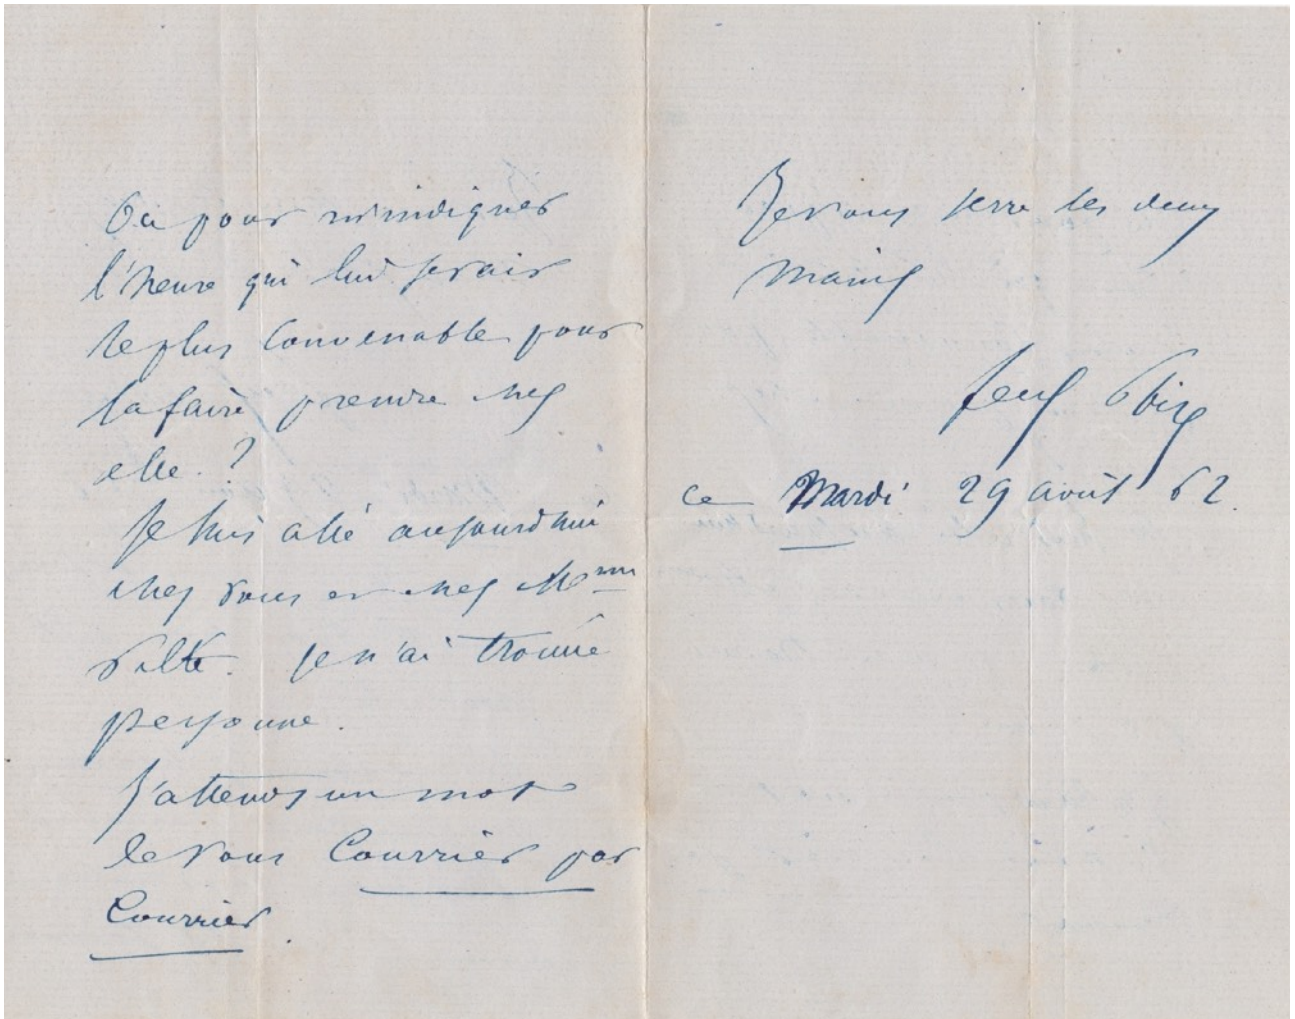 Ou pour m'indiquer
l'heure qui lui serait
le plus convenable pour
la faire prendre chez
elle ?
Je suis allé aujourd'hui
chez vous et chez Mme
je n'ai trouvé
personne.
J'attends un mot
de vous Courrier par
Courrier.
Je vous serre les deux
mains
ce Mardi 29 août 62.